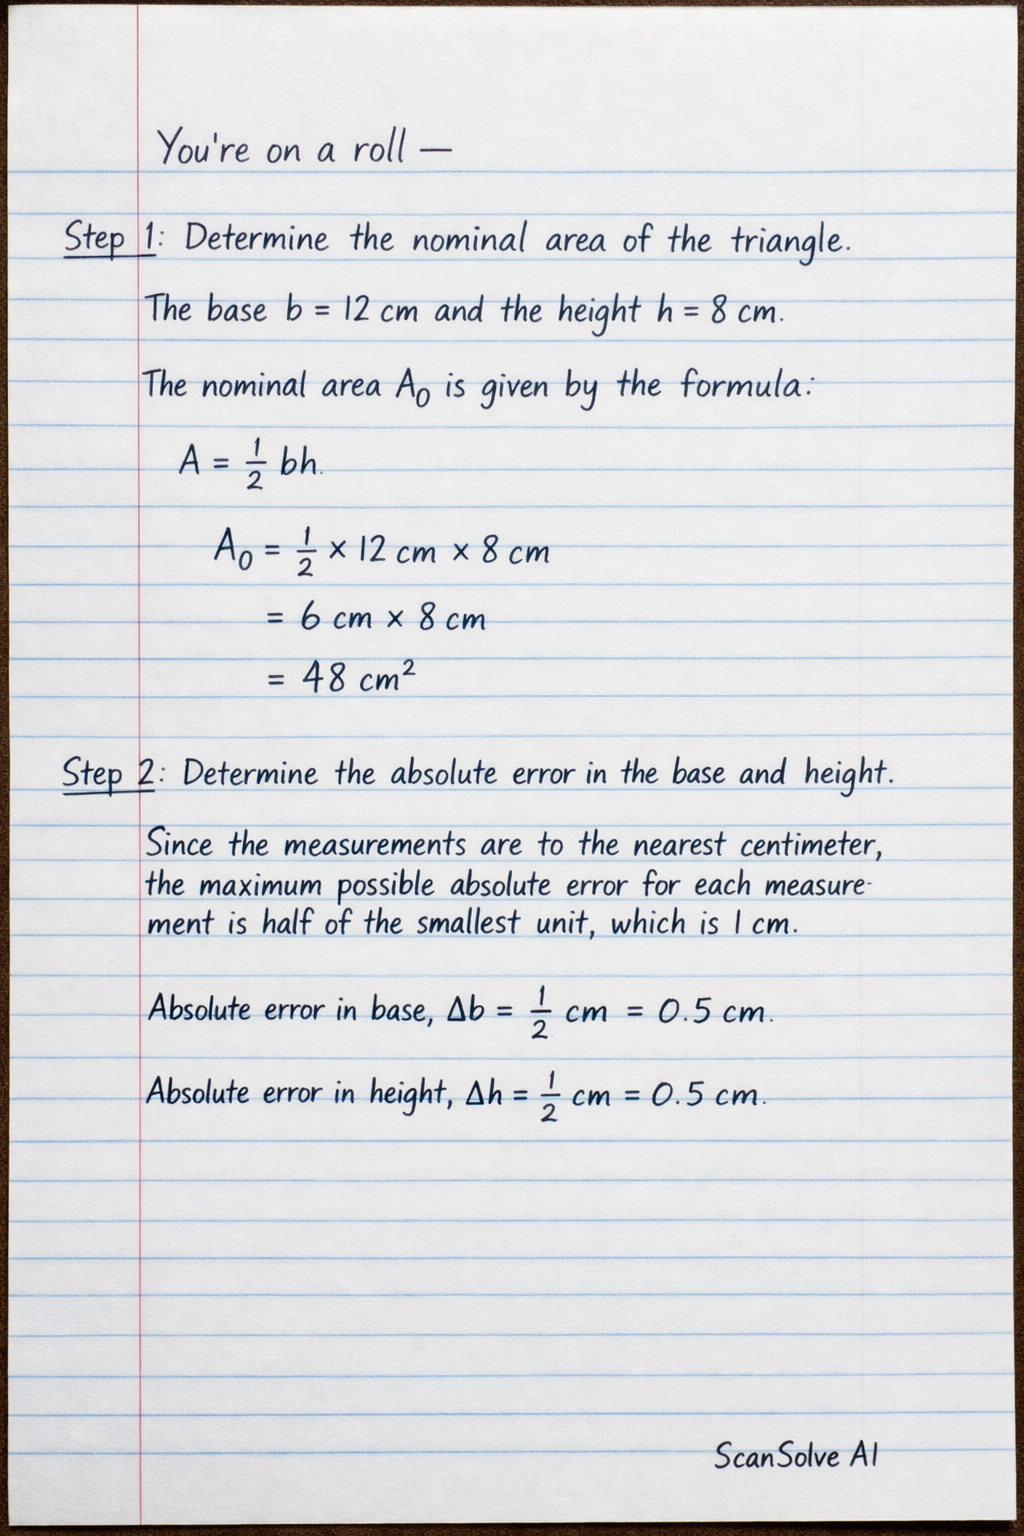 You're on a roll —
Step 1: Determine the nominal area of the triangle.
The base b = 12 cm and the height h = 8 cm.
The nominal area A₀ is given by the formula:
A = 1/2 bh.
A₀ = 1/2 × 12 cm × 8 cm
= 6 cm × 8 cm
= 48 cm²
Step 2: Determine the absolute error in the base and height.
Since the measurements are to the nearest centimeter,
the maximum possible absolute error for each measure-
ment is half of the smallest unit, which is 1 cm.
Absolute error in base, Δb = 1/2 cm = 0.5 cm.
Absolute error in height, Δh = 1/2 cm = 0.5 cm.
ScanSolve AI